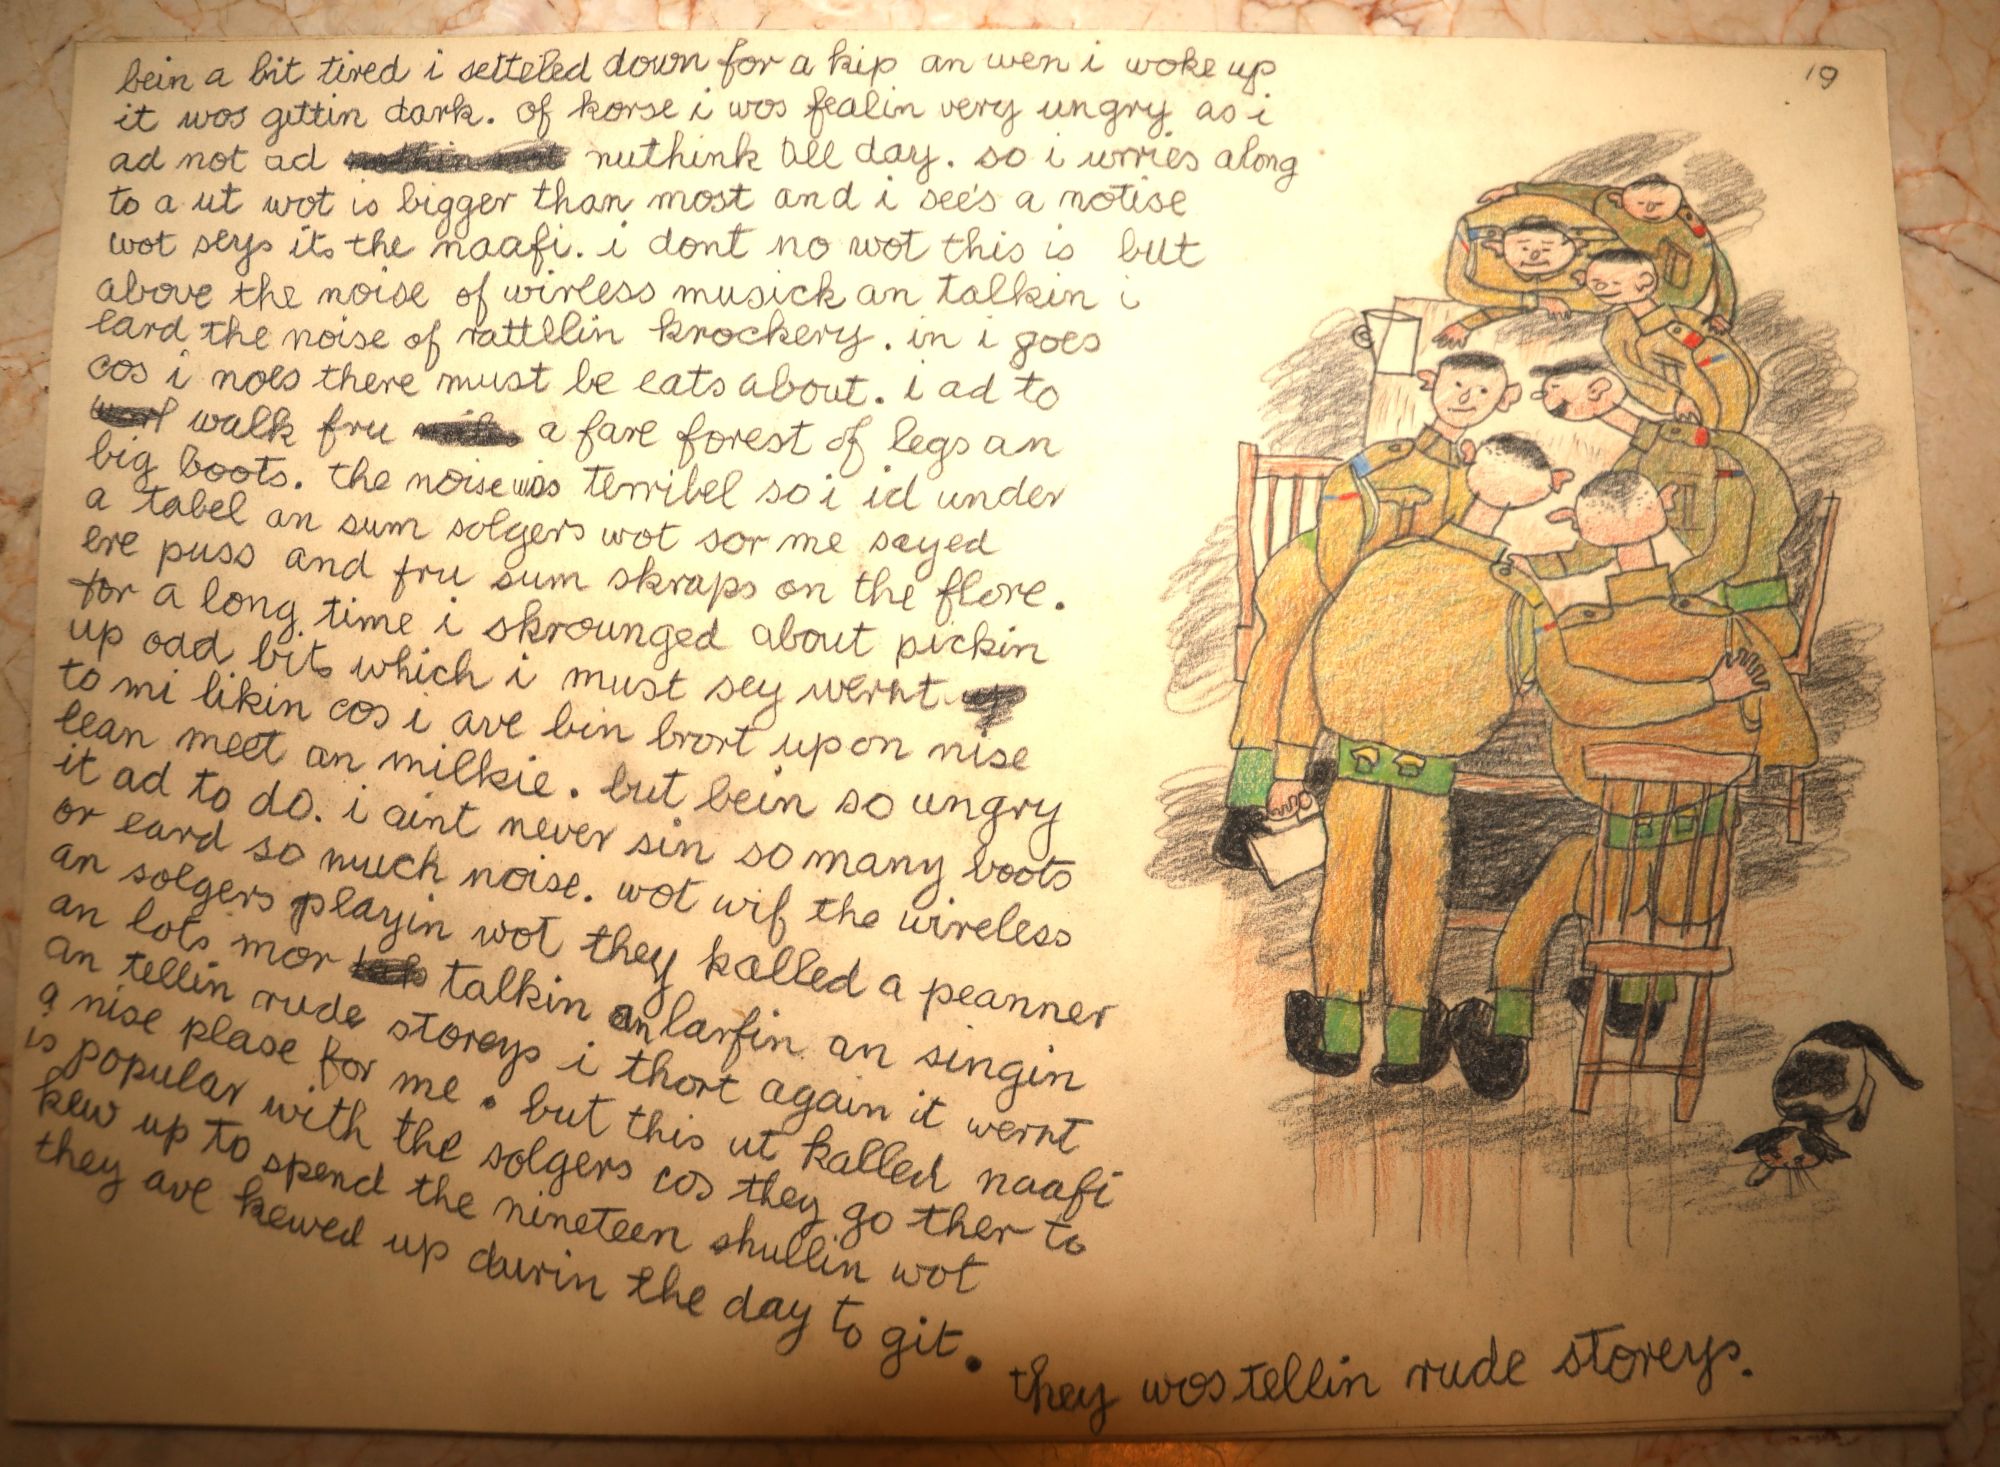 19
bein a bit tired i setteled down for a kip an wen i woke up
it wos gittin dark. of korse i wos fealin very ungry as i
ad not ad nuthink all day. so i urries along
to a ut wot is bigger than most and i see's a notise
wot seys its the naafi. i dont no wot this is but
above the noise of wirless musick an talkin i
eard the noise of rattllin krockery. in i goes
cos i noes there must be eats about. i ad to
walk fru a fare forest of legs an
big boots. the noise wos terribel so i id under
a tabel an sum solgers wot sor me sayed
ere puss and fru sum skraps on the flore.
for a long time i skrounged about pickin
up odd bits which i must sey wernt
to mi likin cos i ave bin brort up on nise
lean meet an milkie. but bein so ungry
it ad to do. i aint never sin so many boots
or eard so much noise. wot wif the wireless
an solgers playin wot they kalled a peanner
an lots mor talkin an larfin an singin
an tellin rude storeys i thort again it wernt
a nise plase for me. but this ut kalled naafi
is popular with the solgers cos they go ther to
kew up to spend the nineteen shullin wot
they ave kewed up durin the day to git.
they wos tellin rude storeys.